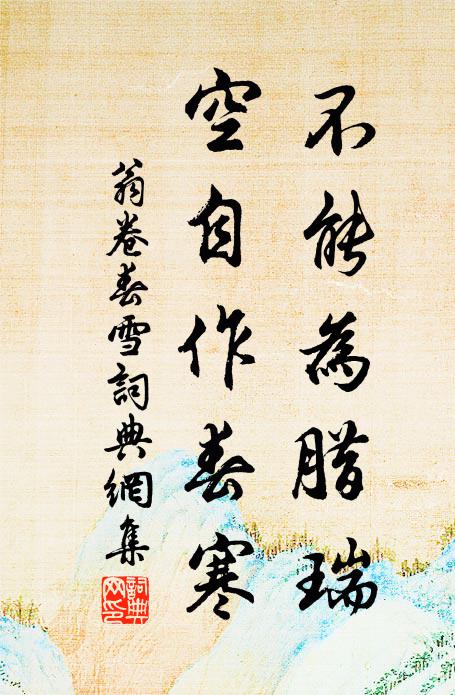 不能為腊瑞
空自作春寒
翁卷春雪詞典網集
詞典